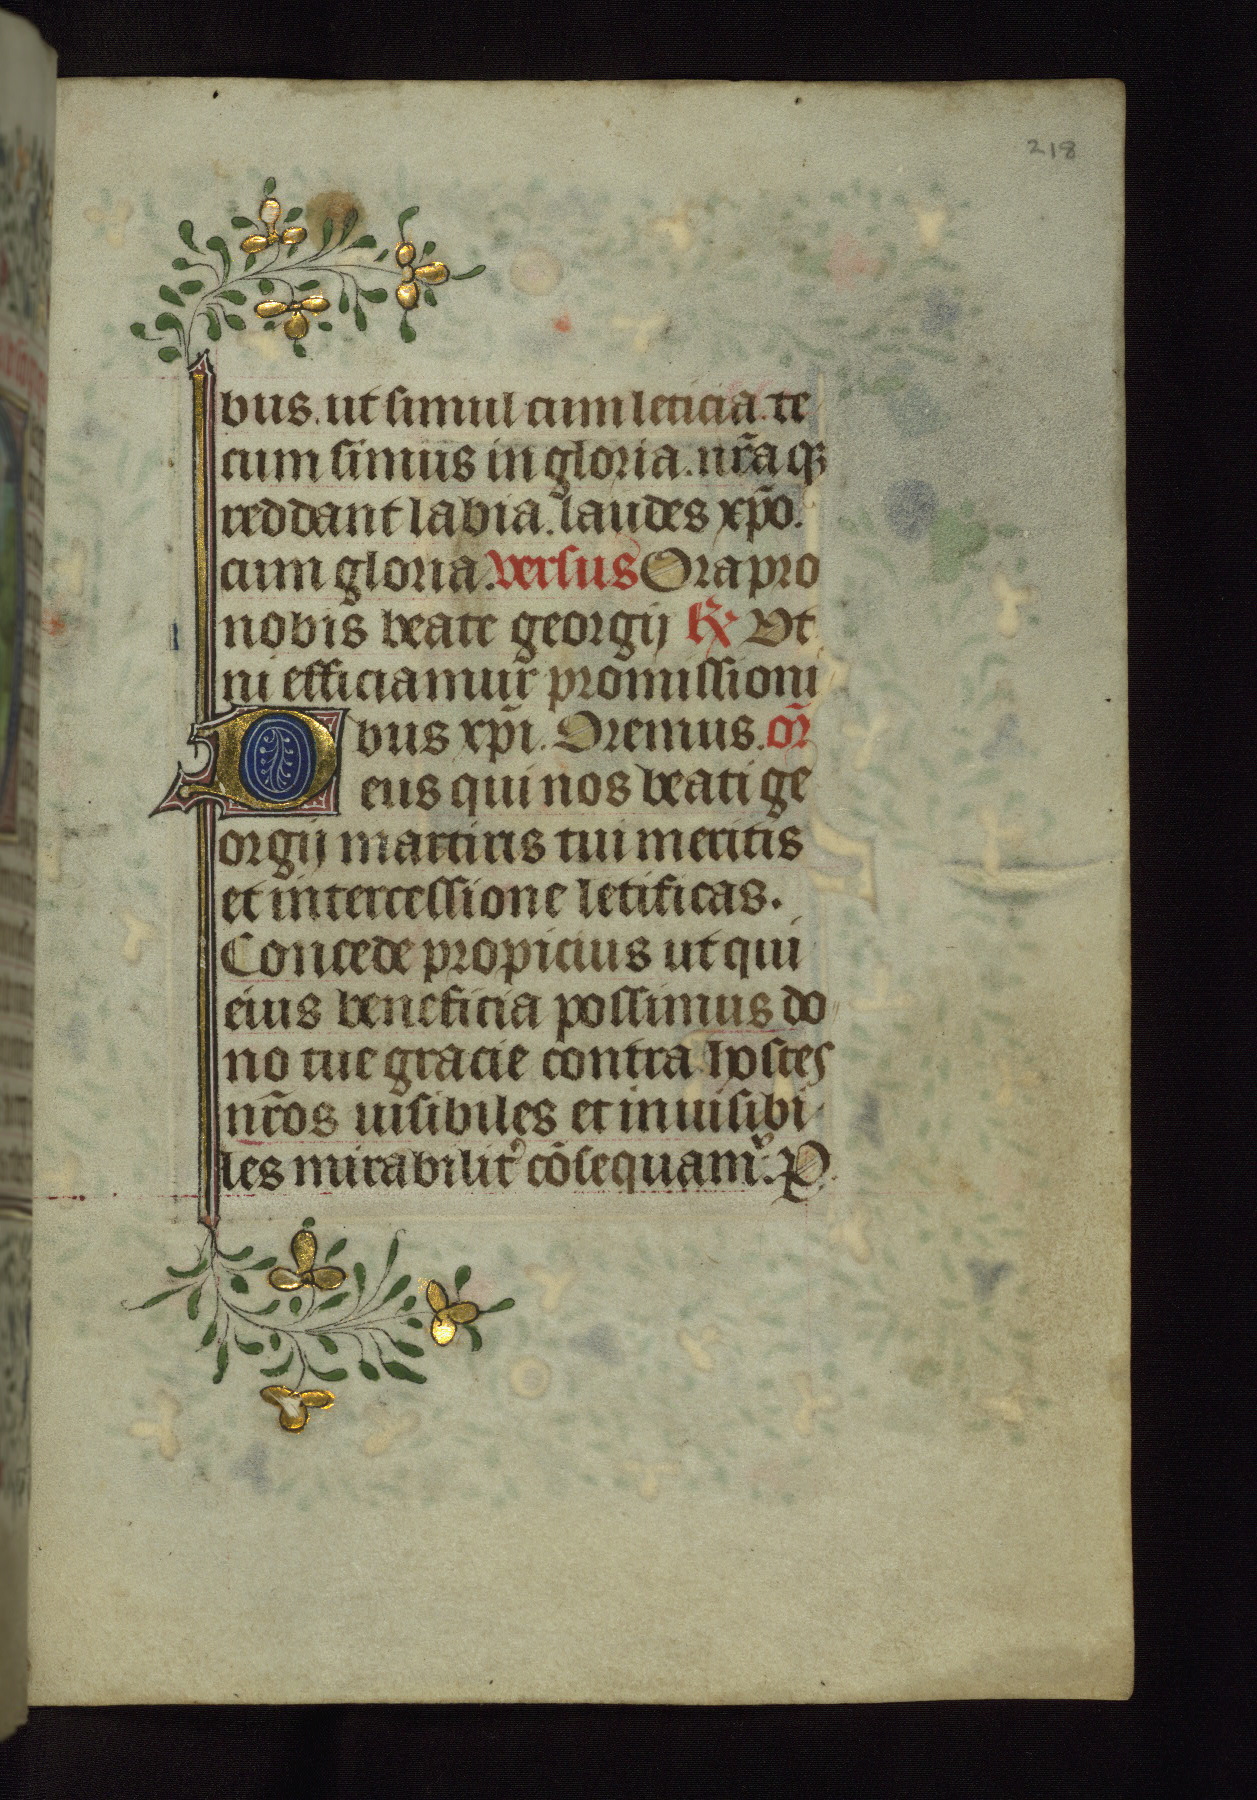 218
bus. ut simul cum leticia. te
cum simus in gloria. nr̃a qꝫ
reddant labia. laudes xp̃o.
cum gloria. versus Ora pro
nobis beate georgij ℟ Ut
ni efficiamur promissioni
bus xp̃i. Oremus. or̃
Deus qui nos beati ge
orgij martiris tui meritis
et intercessione letificas.
Concede propicius ut qui
eius beneficia possimus do
no tue gracie contra hostes
nr̃os uisibiles et inuisibi
les mirabilit᷑ cõsequam᷑. P